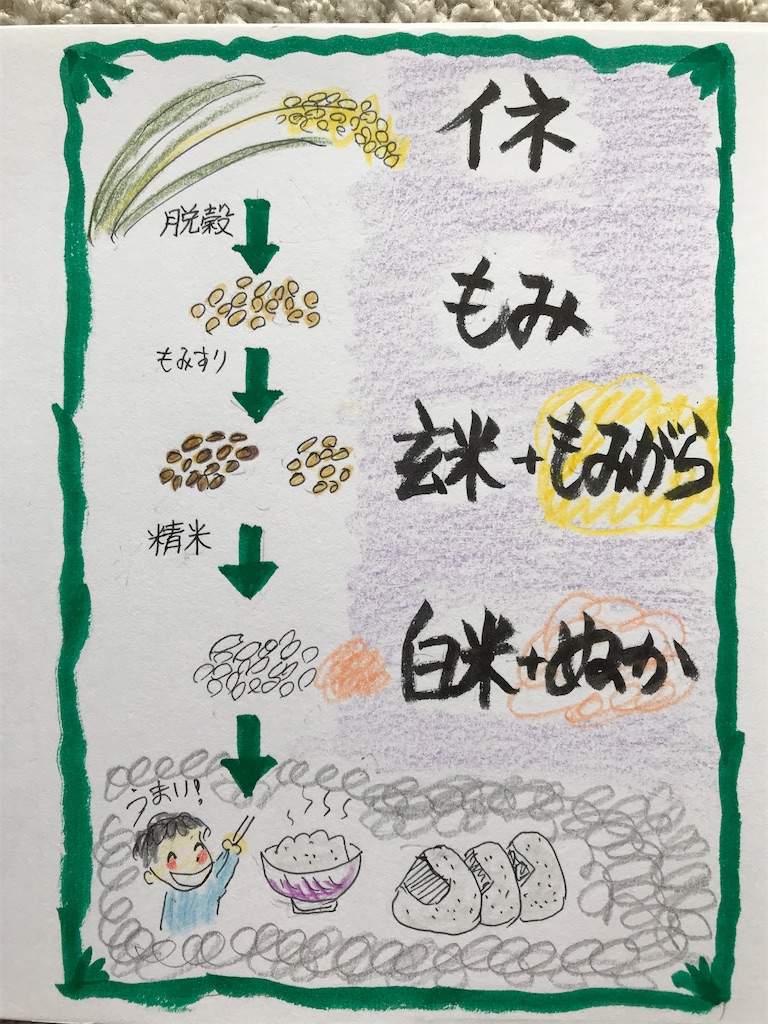 イネ
脱穀
もみ
もみすり
玄米+もみがら
精米
白米+ぬか
うまい!